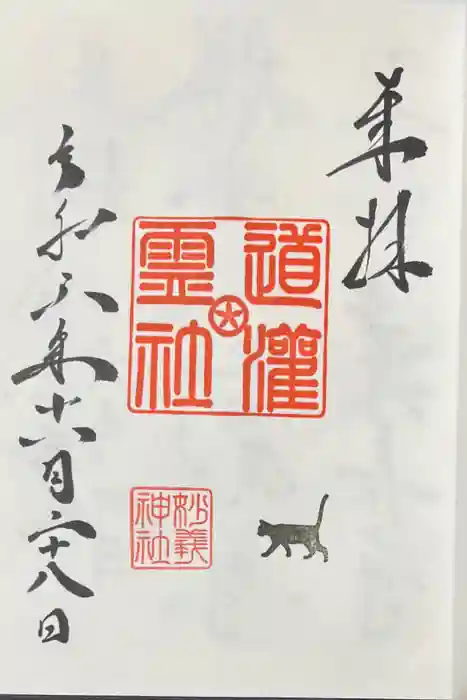 奉拝
道灌
霊社
妙義
神社
令和六年十二月二十八日